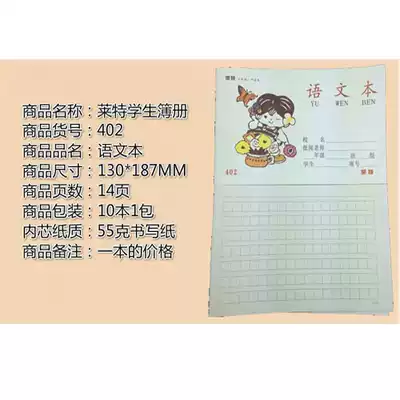 商品名称：莱特学生簿册
商品货号：402
商品品名：语文本
商品尺寸：130*187MM
商品页数：14页
商品包装：10本1包
内芯纸质：55克书写纸
商品备注：一本的价格
语文本
YU WEN BEN
姓名
班级
年级
学生
402